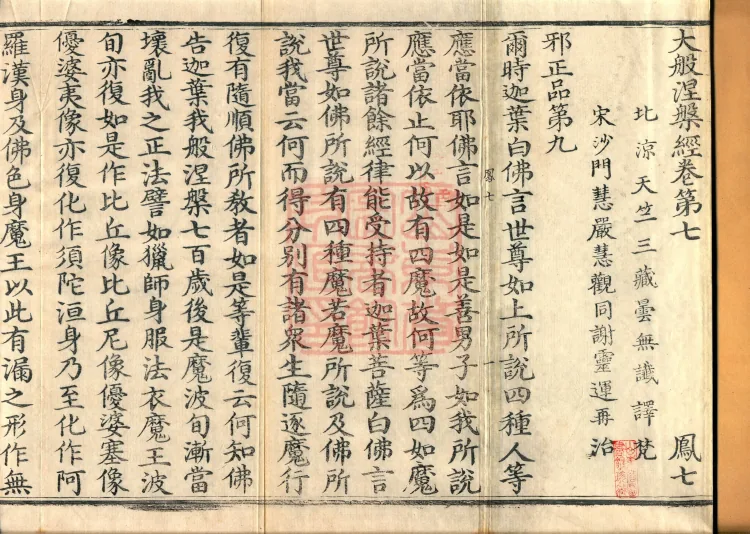 大般涅槃經卷第七 鳳七
北涼天竺三藏曇無讖譯梵
宋沙門慧嚴慧觀同謝靈運再治
邪正品第九
爾時迦葉白佛言世尊如上所說四種人等
應當依耶佛言如是如是善男子如我所說
鳳七
應當依止何以故有四魔故何等爲四如魔
所說諸餘經律能受持者迦葉菩薩白佛言
世尊如佛所說有四種魔若魔所說及佛所
說我當云何而得分別有諸衆生隨逐魔行
復有隨順佛所教者如是等輩復云何知佛
告迦葉我般涅槃七百歲後是魔波旬漸當
壞亂我之正法譬如獵師身服法衣魔王波
旬亦復如是作比丘像比丘尼像優婆塞像
優婆夷像亦復化作須陀洹身乃至化作阿
羅漢身及佛色身魔王以此有漏之形作無